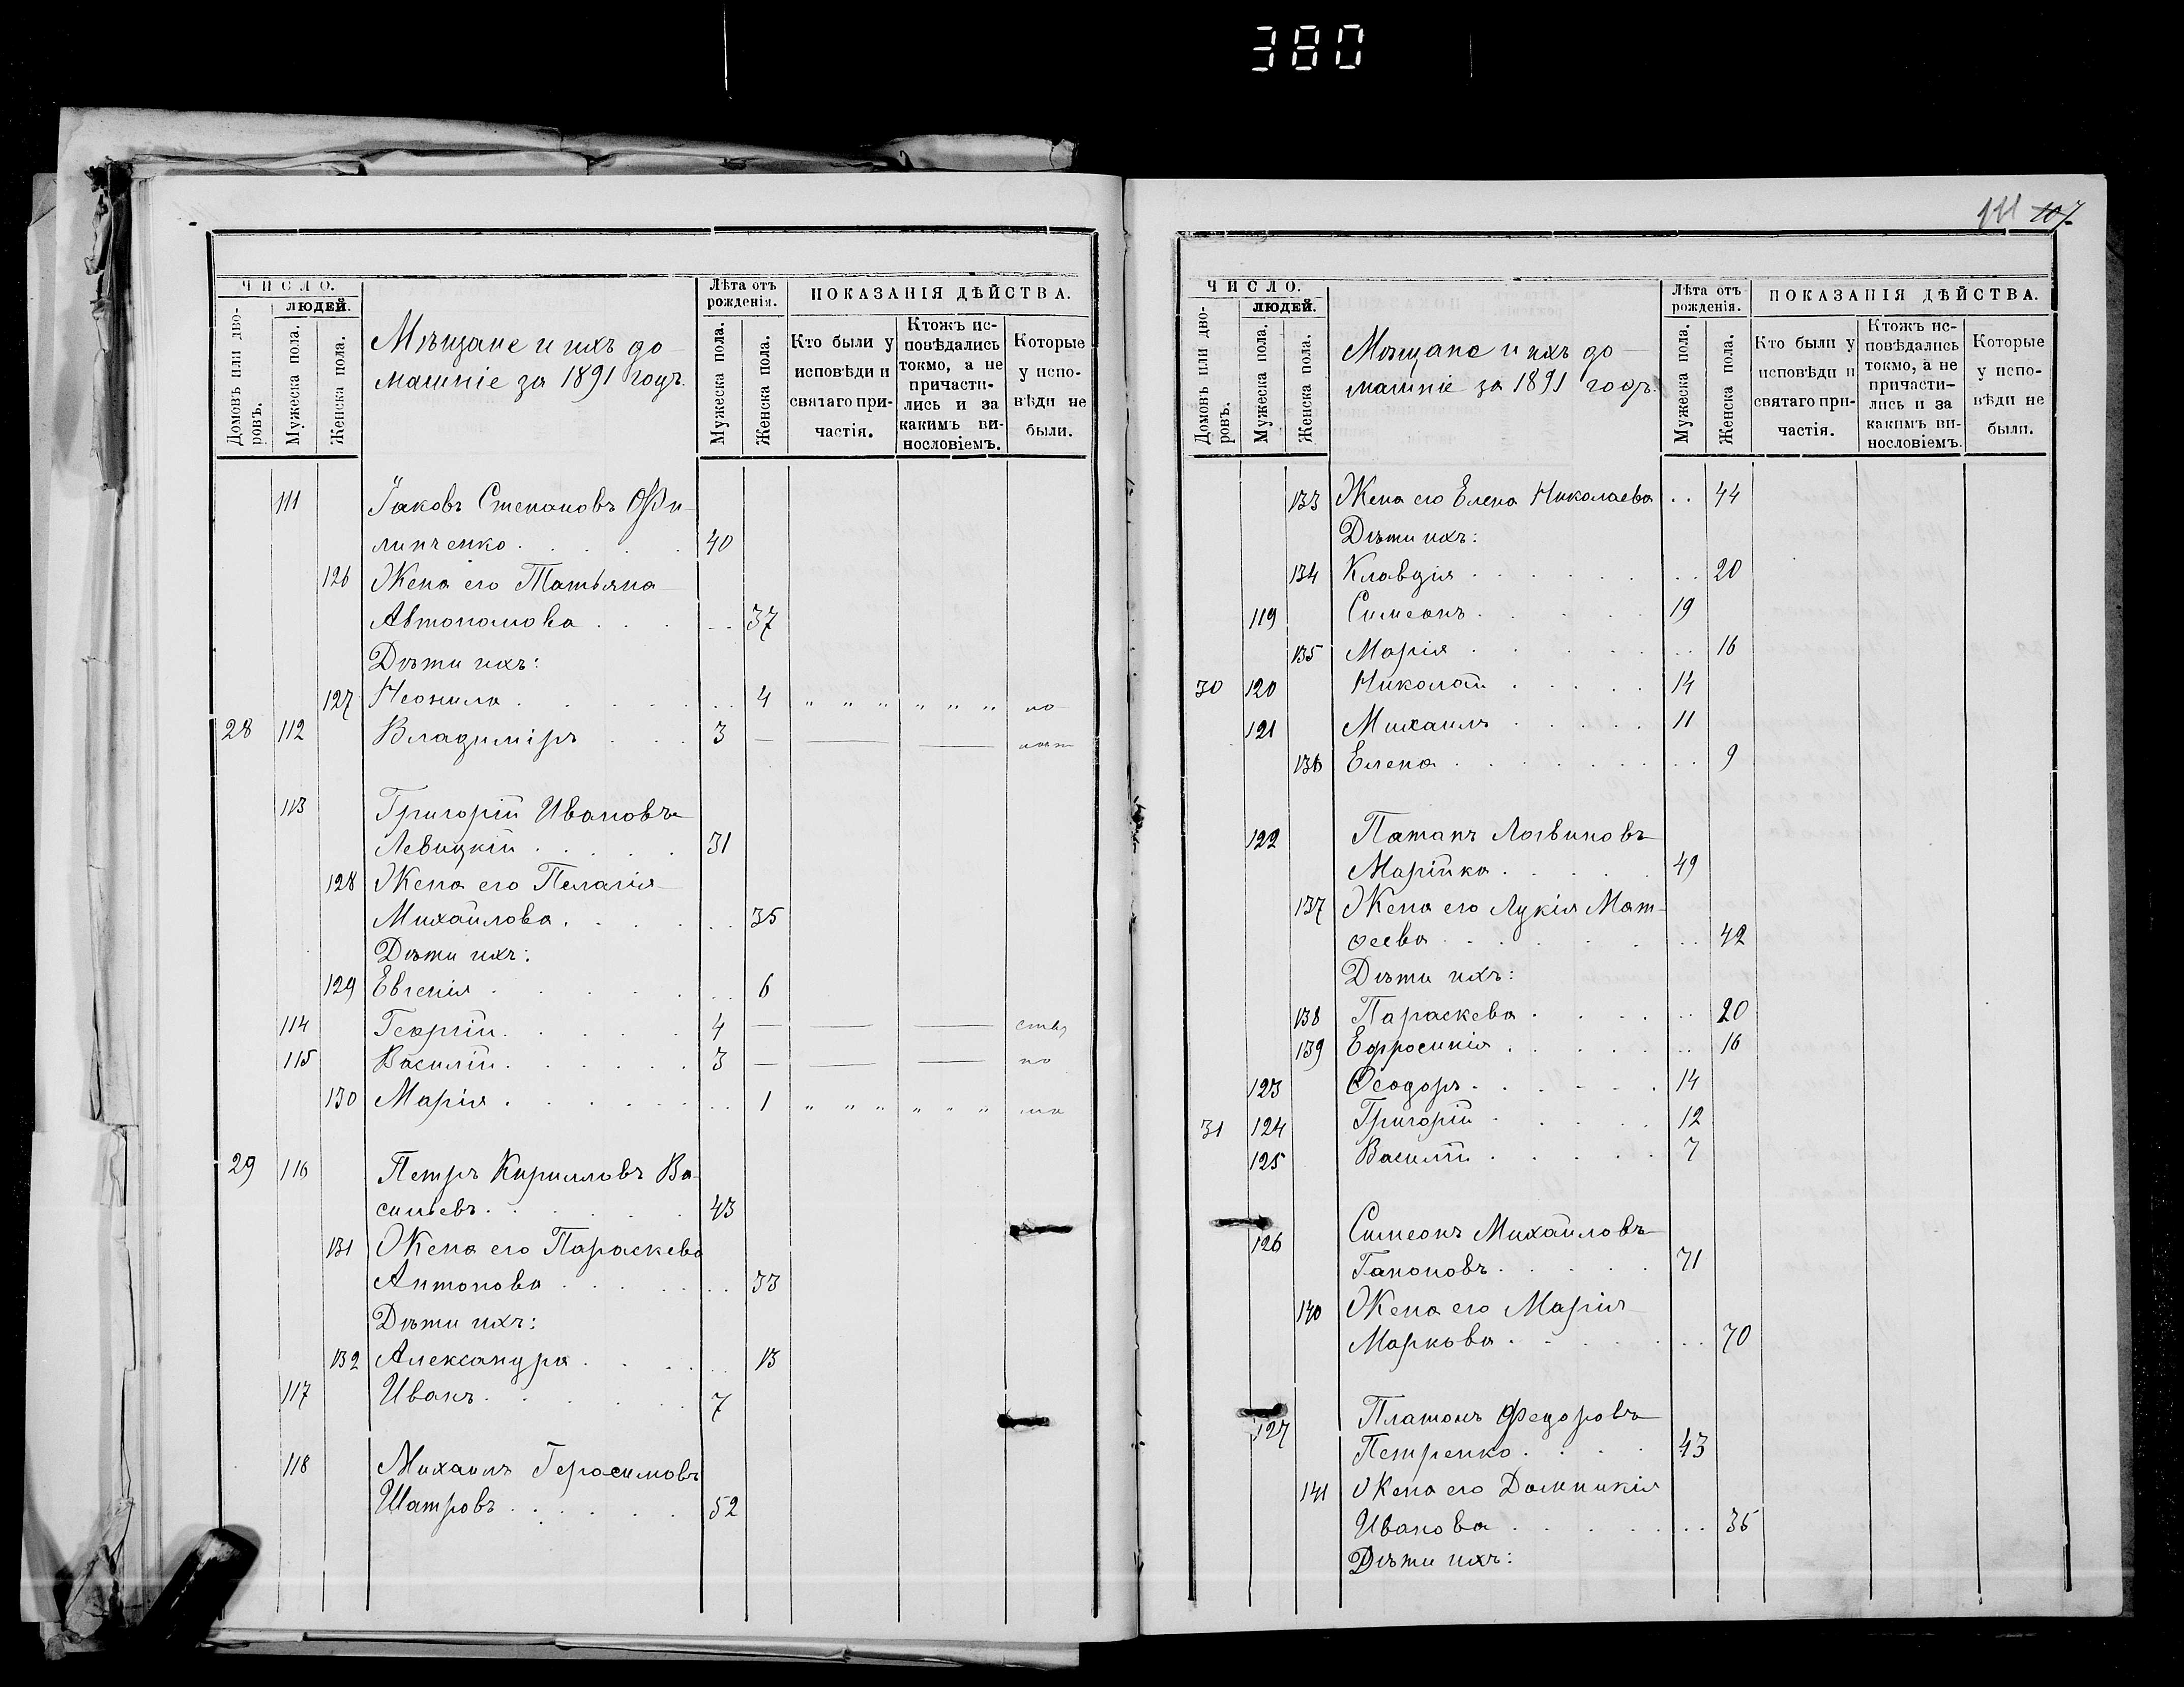 380
ЧИСЛО.
ЛЮДЕЙ.
Домовъ или дво-
ровъ.
Мужеска пола.
Женска пола.
Мѣщане и ихъ до-
машніе за 1891 годъ.
Лѣта отъ
рожденія.
Мужеска пола.
Женска пола.
ПОКАЗАНІЯ ДѢЙСТВА.
Кто были у
исповѣди и
святаго при-
частія.
Ктожъ ис-
повѣдались
токмо, а не
причасти-
лись и за
какимъ ви-
нословіемъ.
Которые
у испо-
вѣди не
были.
111 Іаковъ Степановъ
липченко . . . . . 40
126 Жена его Татьяна
Автономова . . . . . 37
Дѣти ихъ:
127 Неонила . . . . . . . 4 " " " " " " по
28 112 Владиміръ . . . 3 — — —
113 Григорій Ивановъ
Левицкій . . . . . 31
128 Жена его Пелагія
Михайлова . . . . . . 35
Дѣти ихъ:
129 Евгенія . . . . . . . 6
114 Георгій . . . . . 4 — — —
115 Василій . . . . . . 3 — — — по
130 Марія . . . . . . . . 1 " " " " " "
29 116 Петръ Кирилловъ Ва-
сильевъ . . . . . . 43
131 Жена его Параскева
Антонова . . . . . . . 33
Дѣти ихъ:
132 Александра . . . . . 13
117 Иванъ . . . . . . 7
118 Михаилъ Герасимовъ
Шатровъ . . . . . . 52
111 107
ЧИСЛО.
ЛЮДЕЙ.
Домовъ или дво-
ровъ.
Мужеска пола.
Женска пола.
Мѣщане и ихъ до-
машніе за 1891 годъ.
Лѣта отъ
рожденія.
Мужеска пола.
Женска пола.
ПОКАЗАНІЯ ДѢЙСТВА.
Кто были у
исповѣди и
святаго при-
частія.
Ктожъ ис-
повѣдались
токмо, а не
причасти-
лись и за
какимъ ви-
нословіемъ.
Которые
у испо-
вѣди не
были.
133 Жена его Елена Николаева . . 44
Дѣти ихъ:
134 Клавдія . . . . . . . 20
119 Симеонъ . . . . . 19
135 Марія . . . . . . . 16
30 120 Николай . . . . . 14
121 Михаилъ . . . . . 11
136 Елена . . . . . . . . 9
122 Патапъ Логвиновъ
Марійка . . . . . 49
137 Жена его Лукія Мат-
ѳеева . . . . . . . 42
Дѣти ихъ:
138 Параскева . . . . . . 20
139 Ефросинія . . . . . . . 16
123 Ѳеодоръ . . . . . . 14
31 124 Григорій . . . . . 12
125 Василій . . . . . 7
126 Симеонъ Михайловъ
Гапоновъ . . . . . 71
140 Жена его Марія
Маркова . . . . . . . 70
127 Платонъ Федоровъ
Петренко . . . . 43
141 Жена его Домникія
Иванова . . . . . . . 35
Дѣти ихъ: